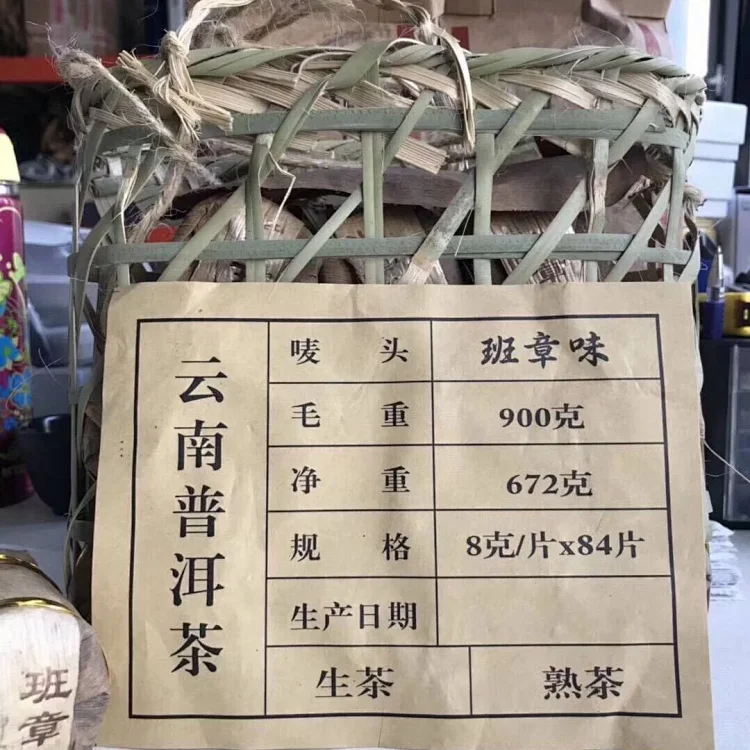 云南普洱茶
唛 头 班章味
毛 重 900克
净 重 672克
规 格 8克/片x84片
生产日期
生茶 熟茶
班章